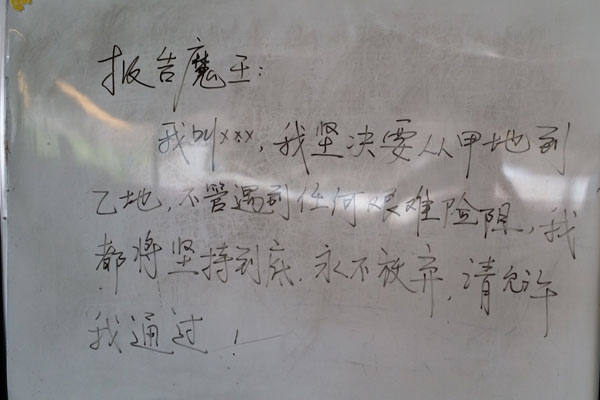 报告魔王:
我叫xxx,我坚决要从甲地到
乙地,不管遇到任何艰难险阻,我
都将坚持到底.永不放弃,请允许
我通过!